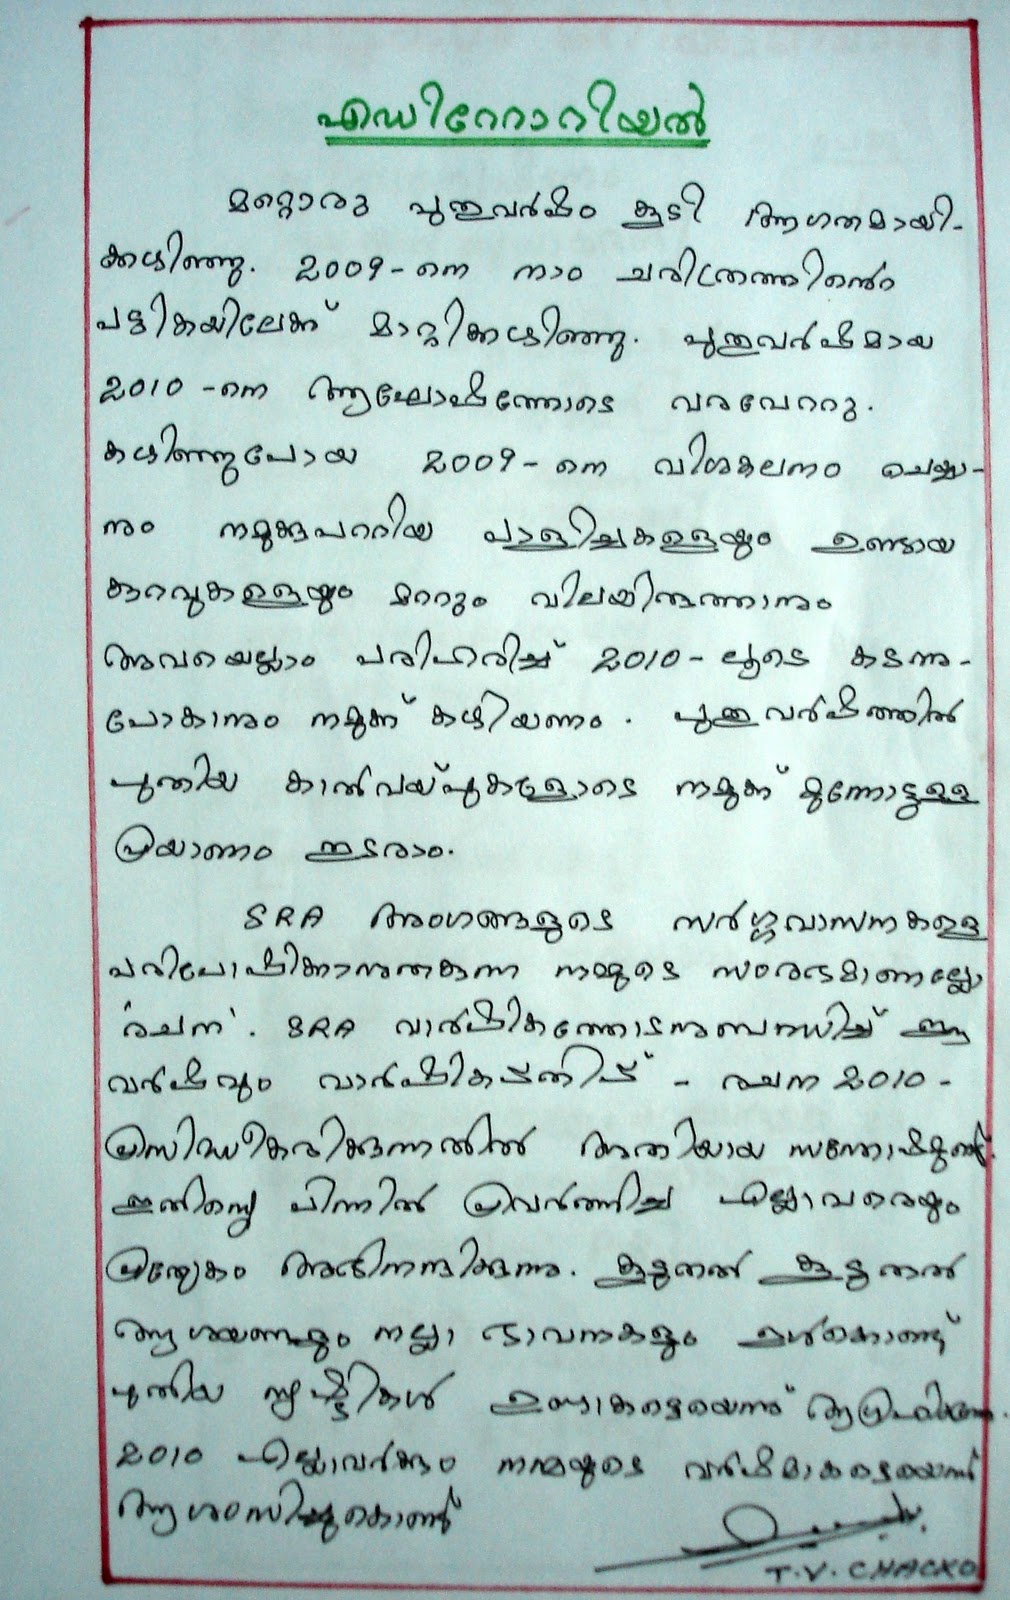 എഡിറേറാറിയൽ
മറ്റൊരു പുതുവർഷം കൂടി ആഗതമായി-
ക്കഴിഞ്ഞു. 2009-നെ നാം ചരിത്രത്തിൻെറ
പട്ടികയിലേക്ക് മാറ്റിക്കഴിഞ്ഞു. പുതുവർഷമായ
2010-നെ ആഘോഷത്തോടെ വരവേററു.
കഴിഞ്ഞുപോയ 2009-നെ വിശകലനം ചെയ്യു-
നും നമുക്കുപററിയ പാളിച്ചകളേയും ഉണ്ടായ
കുറവുകളേയും മററും വിലയിരുത്താനും
അവയെല്ലാം പരിഹരിച്ച് 2010-ലൂടെ കടന്നു-
പോകാനും നമുക്ക് കഴിയണം. പുതുവർഷത്തിൽ
പുതിയ കാൽവയ്പുകളോടെ നമുക്ക് മുന്നോട്ടുള്ള
പ്രയാണം തുടരാം.
SRA അംഗങ്ങളുടെ സർഗ്ഗവാസനകളെ
പരിപോഷിക്കാനുതകുന്ന നമ്മുടെ സംരംഭമാണല്ലോ
'രചന'. SRA വാർഷികത്തോടനുബന്ധിച്ച് ഈ
വർഷവും വാർഷികപ്പതിപ്പ് - രചന 2010-
പ്രസിദ്ധീകരിക്കുന്നതിൽ അതിയായ സന്തോഷമുണ്ട്.
ഇതിന്റെ പിന്നിൽ പ്രവർത്തിച്ച എല്ലാവരെയും
പ്രത്യേകം അഭിനന്ദിക്കുന്നു. കൂടുതൽ കൂടുതൽ
ആശയങ്ങളും നല്ല ഭാവനകളും ഉൾക്കൊണ്ട്
പുതിയ സൃഷ്ടികൾ ഉണ്ടാകട്ടെയെന്ന് ആഗ്രഹിക്കുന്നു.
2010 എല്ലാവർക്കും നന്മയുടെ വർഷമാകട്ടെയെന്ന്
ആശംസിച്ചുകൊണ്ട്
T.V. CHACKO